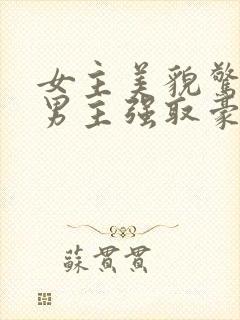 女主美貌驚
男主强取豪
蘇貫貫